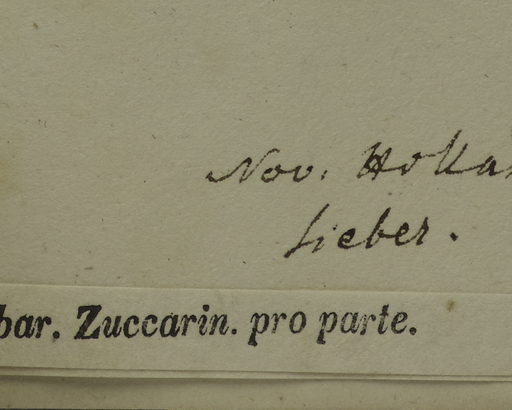 Nov. Holla
Sieber.
bar. Zuccarin. pro parte.